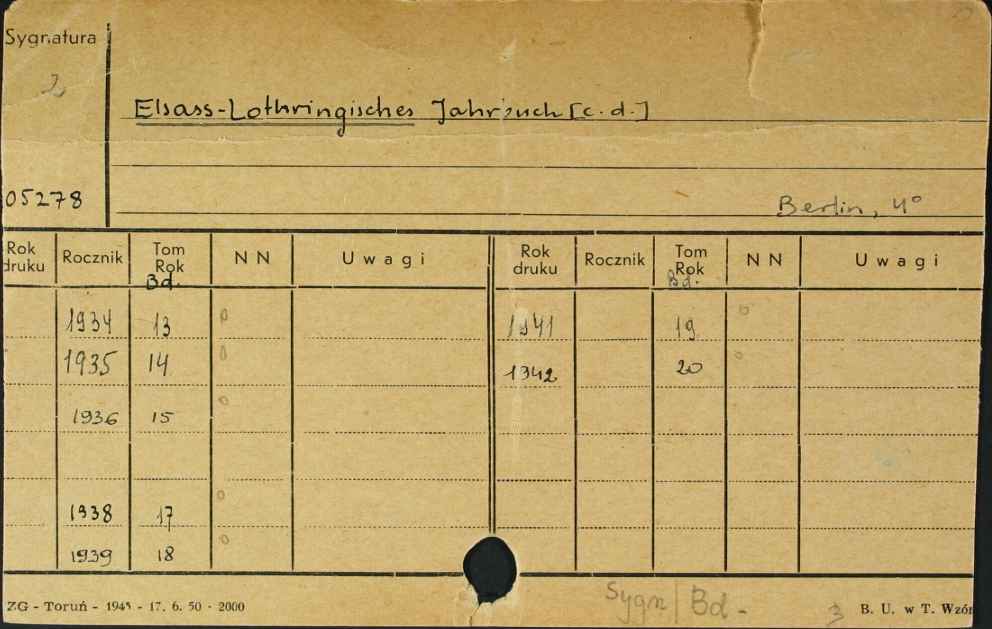 Sygnatura
2
Elsass-Lothringisches Jahrbuch [c.d.]
05278
Berlin, 4°
Rok druku Rocznik Tom Rok Bd. NN Uwagi Rok druku Rocznik Tom Rok Bd. NN Uwagi
1934 13 0 1941 19 0
1935 14 0 1942 20 0
1936 15 0
1938 17 0
1939 18 0
Sygn/Bd-
ZG - Toruń - 1945 - 17. 6. 50 - 2000 3 B. U. w T. Wzór